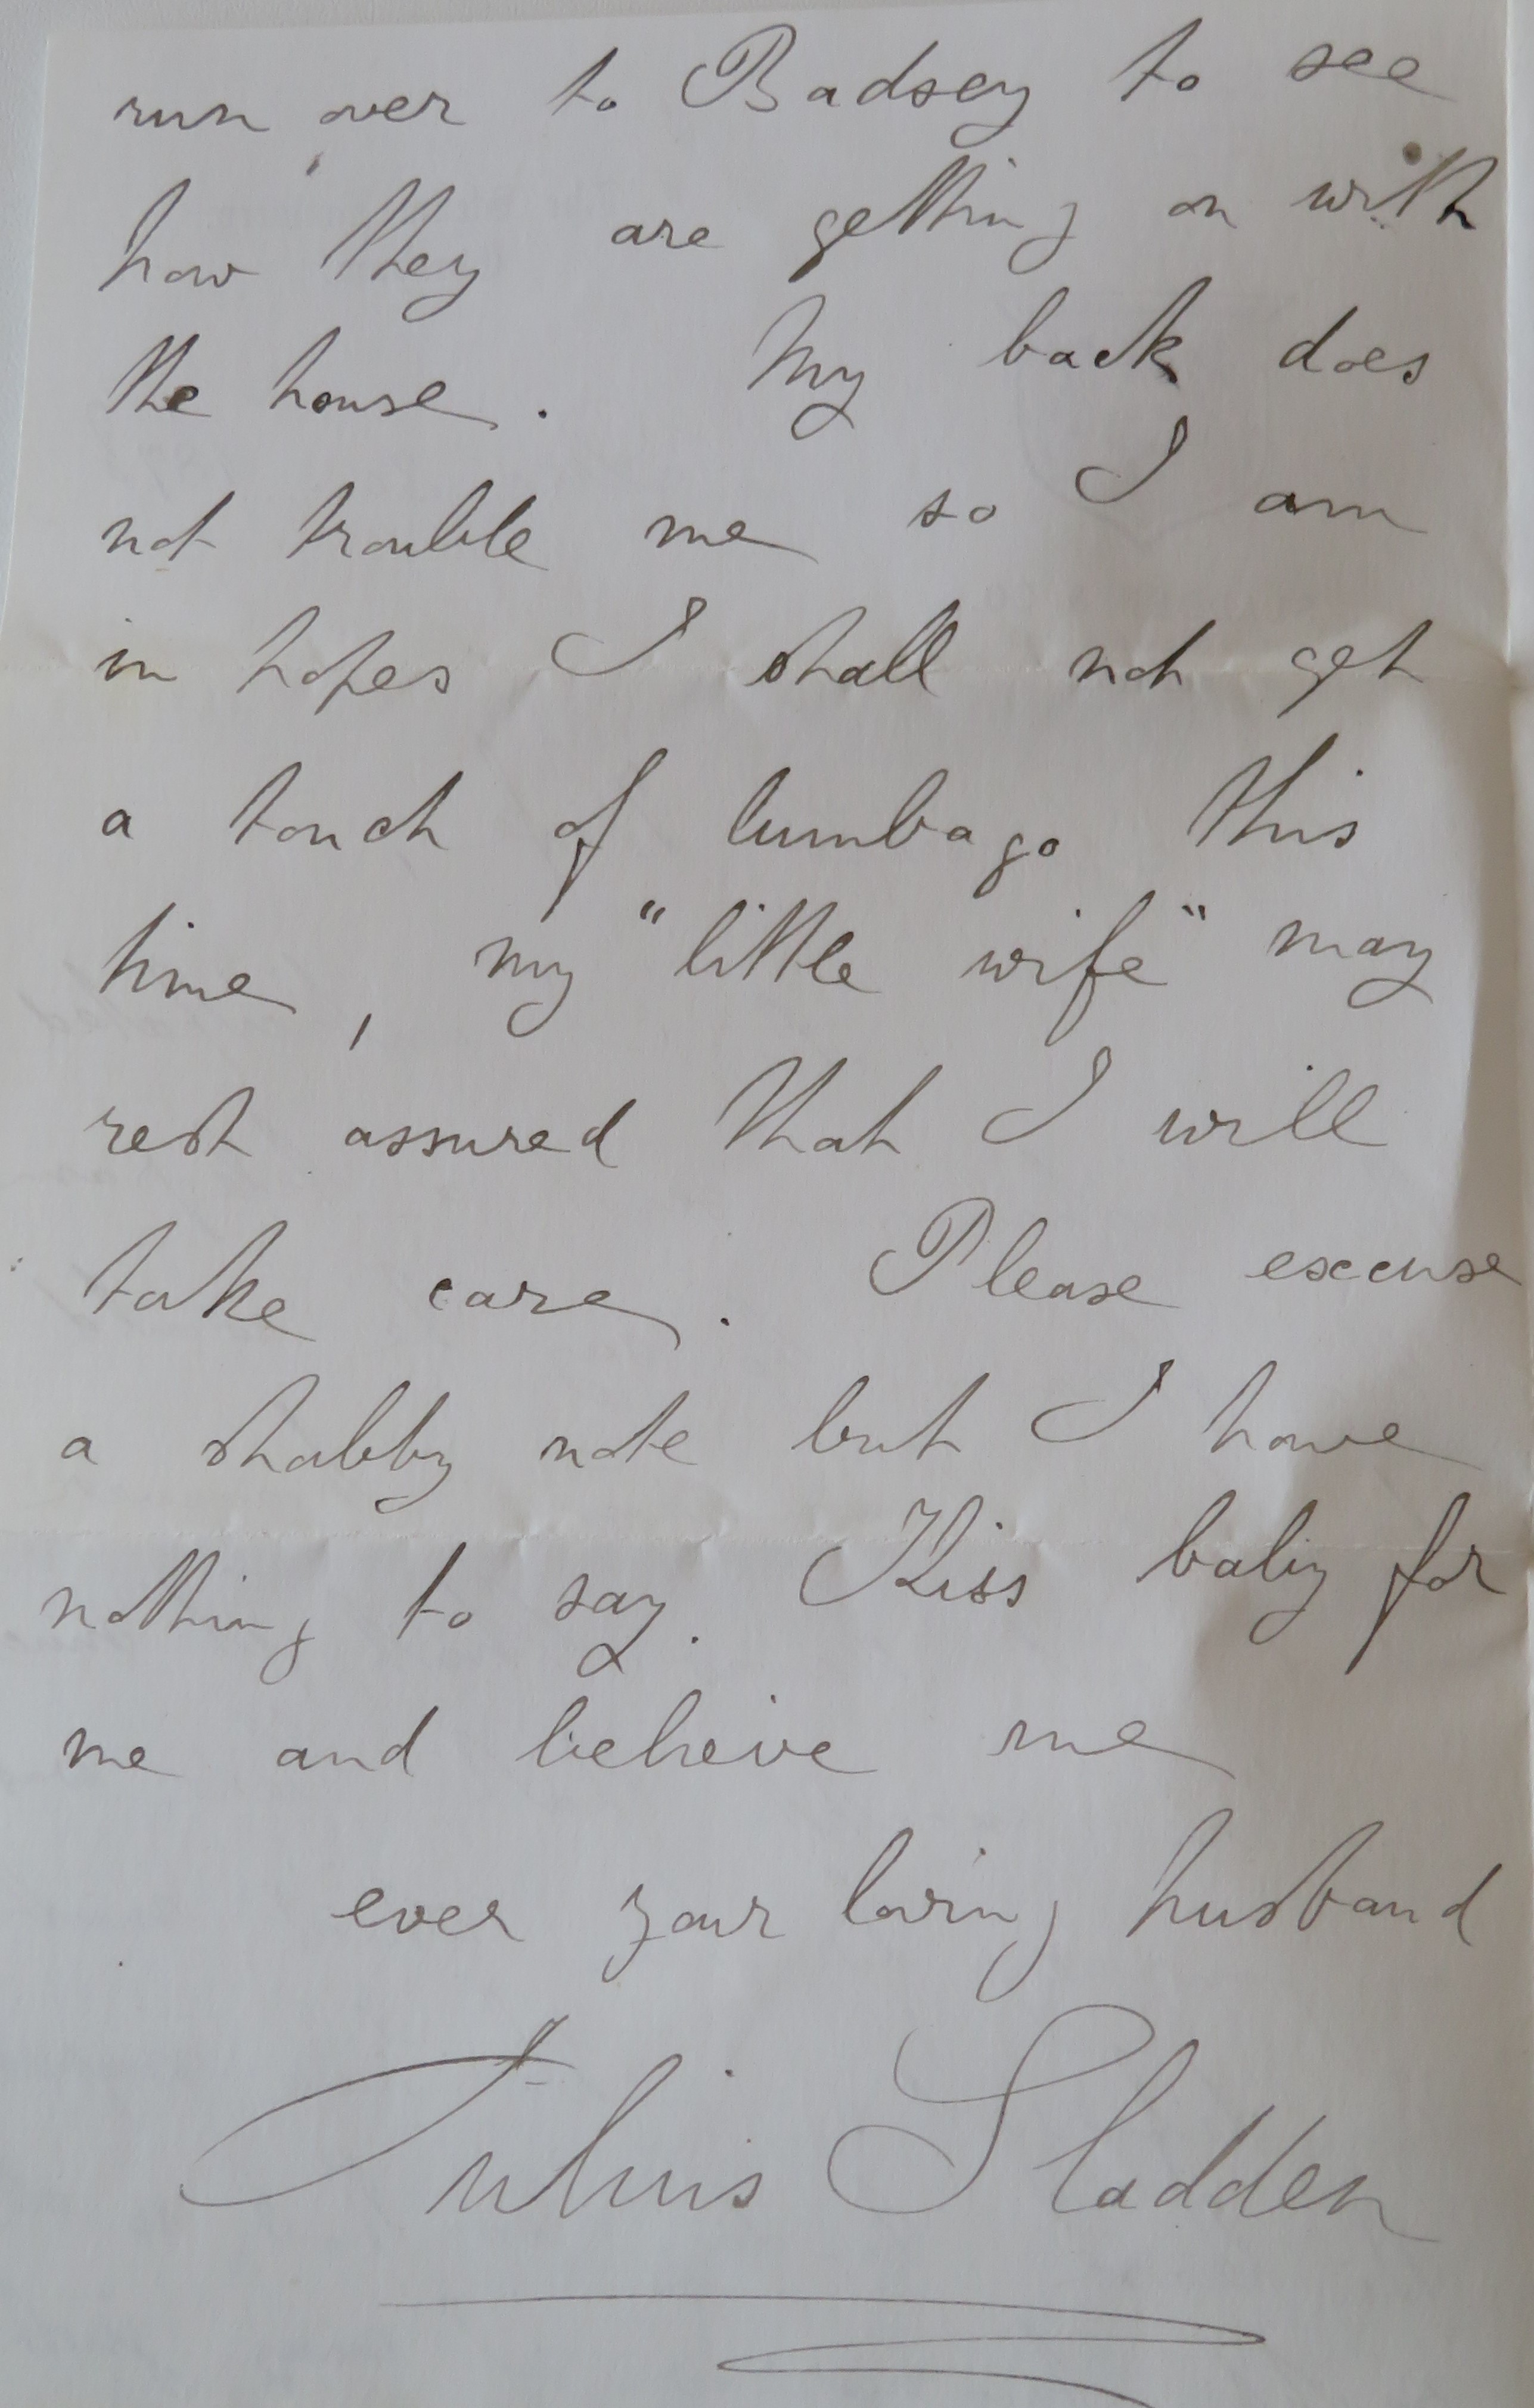 run over to Badsey to see
how they are getting on with
the house. My back does
not trouble me so I am
in hopes I shall not get
a touch of lumbago this
time, my "little wife" may
rest assured that I will
take care. Please excuse
a shabby note but I have
nothing to say. Kiss baby for
me and believe me
ever your loving husband
Julius Sladden